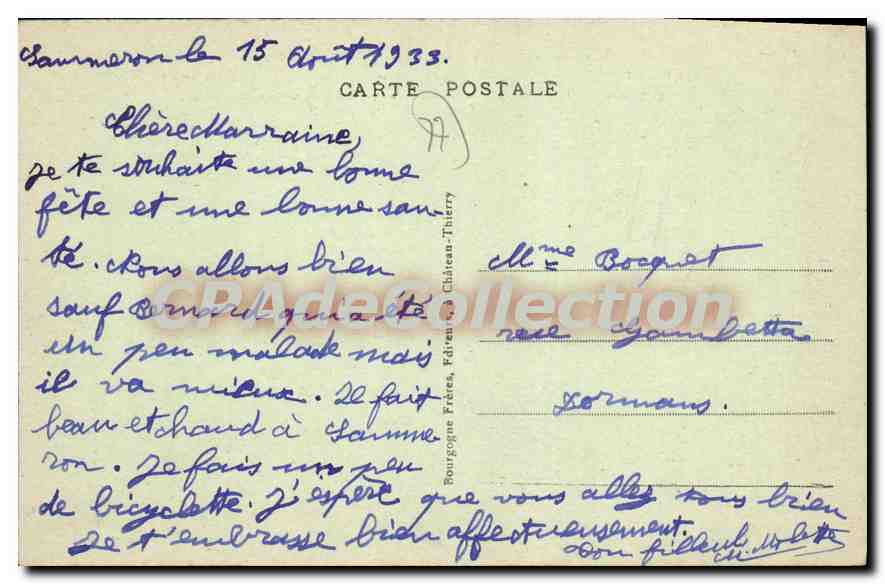 Sammeron le 15 Août 1933.
CARTE POSTALE
77
Chère Marraine,
Je te souhaite une bonne
fête et une bonne san-
té. Nous allons bien
sauf Bernard qui a été
un peu malade mais
il va mieux. Il fait
beau et chaud à Samme
ron. Je fais un peu
de bicyclette. J'espère que vous allez tous bien
Je t'embrasse bien affectueusement.
Ton filleul
M. Molette
Bourgogne Frères, Editeurs, à Château-Thierry
Mme Bocquet
rue Gambetta
Dormans.
CPAdeCollection